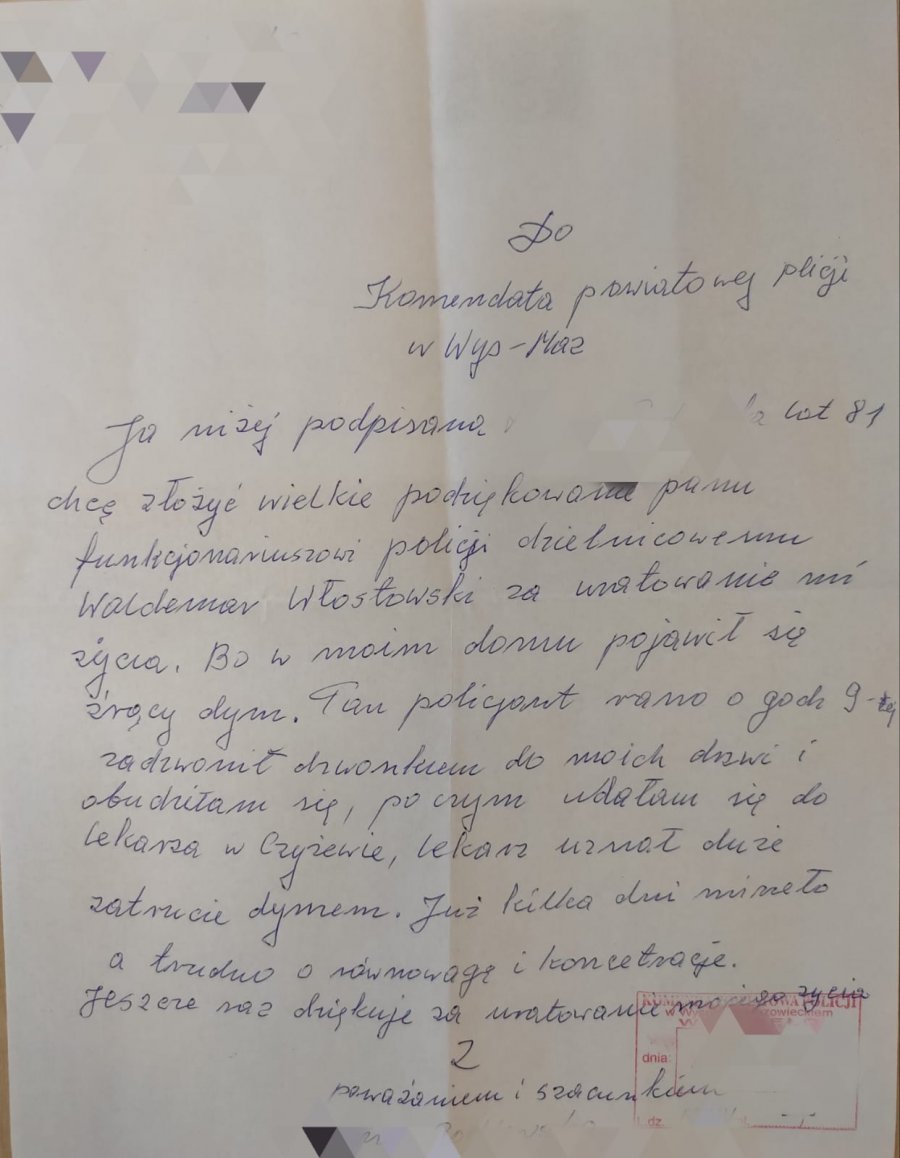 Do
Komendata powiatowej plicji
w Wys-Maz
Ja niżej podpisana lat 81
chcę złożyć wielkie podziękowanie panu
funkcjonariuszowi policji dzielnicowemu
Waldemar Włostowski za uratowanie mi
życia. Bo w moim domu pojawił się
żrący dym. Tan policjant rano o godz 9-tej
zadzwonił dzwonkiem do moich drzwi i
obudziłam się, poczym udałam się do
lekarza w Czyżewie, lekarz uznał duże
zatrucie dymem. Już kilka dni mineło
a trudno o równowagę i koncetracje.
Jeszcze raz dziękuje za uratowanie mojego życia
Z
poważaniem i szacunkiem
POLICJI
dnia: